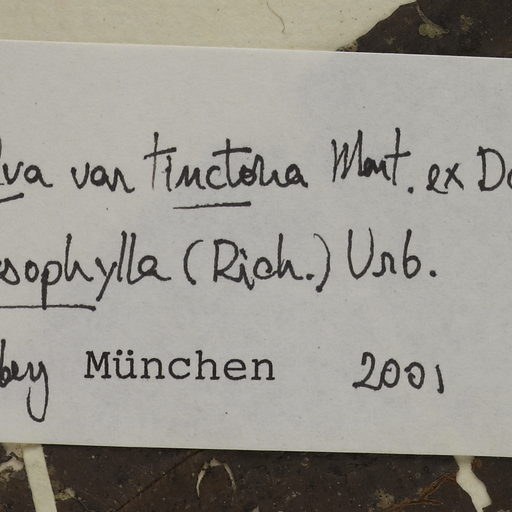 lva var tinctoria Mart. ex D
sophylla (Rich.) Urb.
bey München 2001